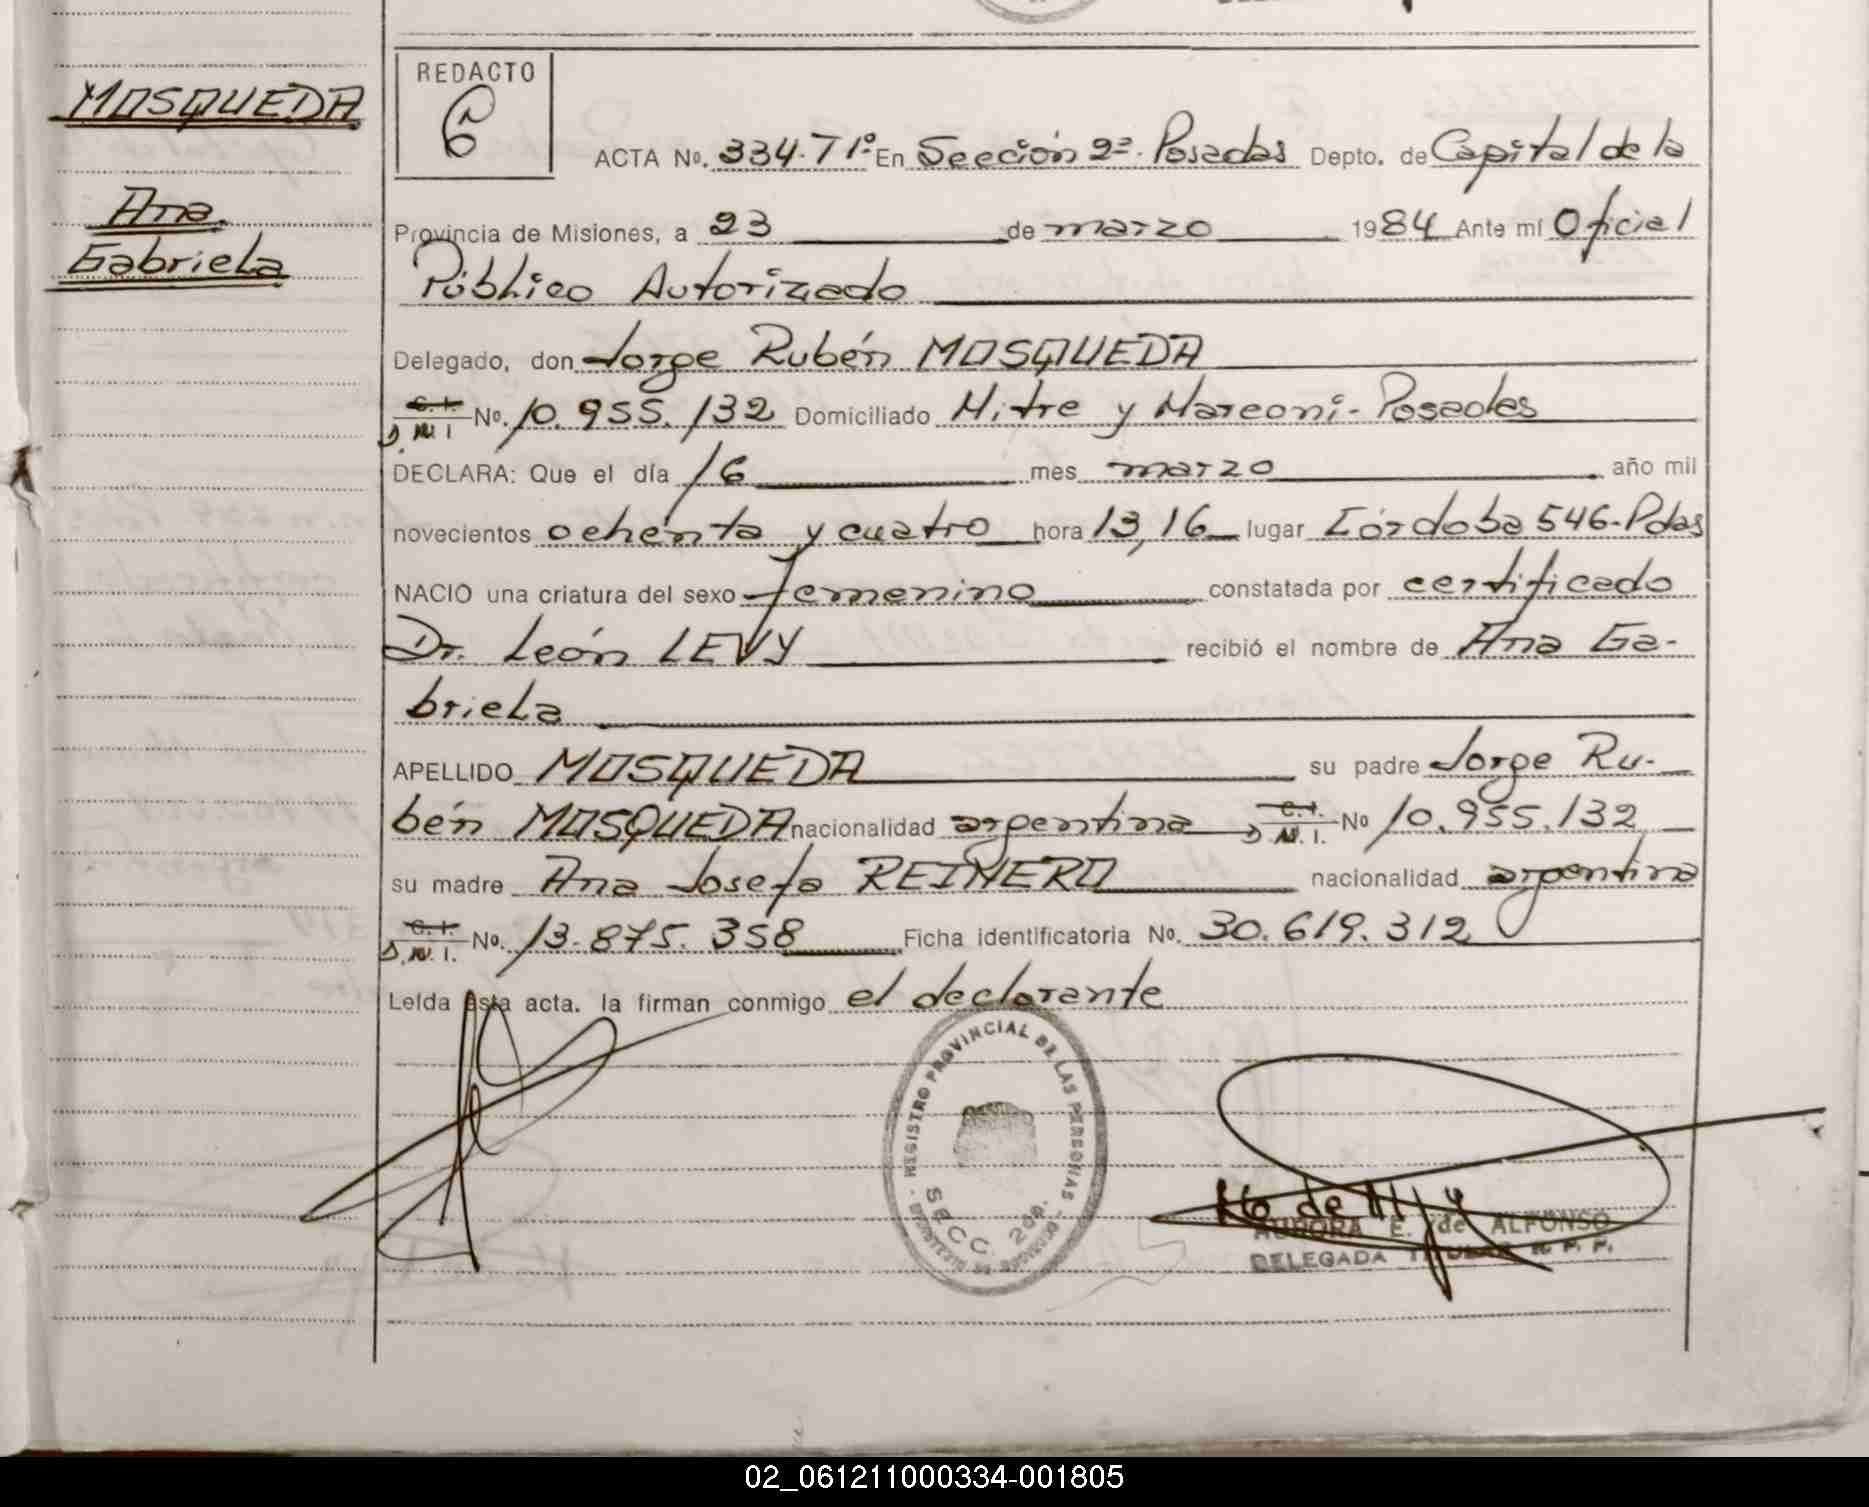 MOSQUEDA
Ana
Gabriela
REDACTO
6
ACTA No. 334.T1º. En Sección 2ª. Posadas Depto. de Capital de la
Provincia de Misiones, a 23 de marzo 1984 Ante mí Oficial
Público Autorizado
Delegado, don Jorge Rubén MOSQUEDA
C.I. D.N.I. No. 10.955.132 Domiciliado Mitre y Marconi-Posadas
DECLARA: Que el día 16 mes marzo año mil
novecientos ochenta y cuatro hora 13,16 lugar Córdoba 546-Pdas
NACIO una criatura del sexo femenino constatada por certificado
Dr. León LEVY recibió el nombre de Ana Ga-
briela
APELLIDO MOSQUEDA su padre Jorge Ru-
bén MOSQUEDA nacionalidad argentina C.I. D.N.I. No 10.955.132
su madre Ana Josefa REINERO nacionalidad argentina
C.I. D.N.I. No. 13.875.358 Ficha identificatoria No. 30.619.312
Leída esta acta. la firman conmigo el declarante
REGISTRO PROVINCIAL DE LAS PERSONAS
SECC. 2da.
AURORA E. de ALFONSO
DELEGADA TITULAR R. P. P.
02_061211000334-001805